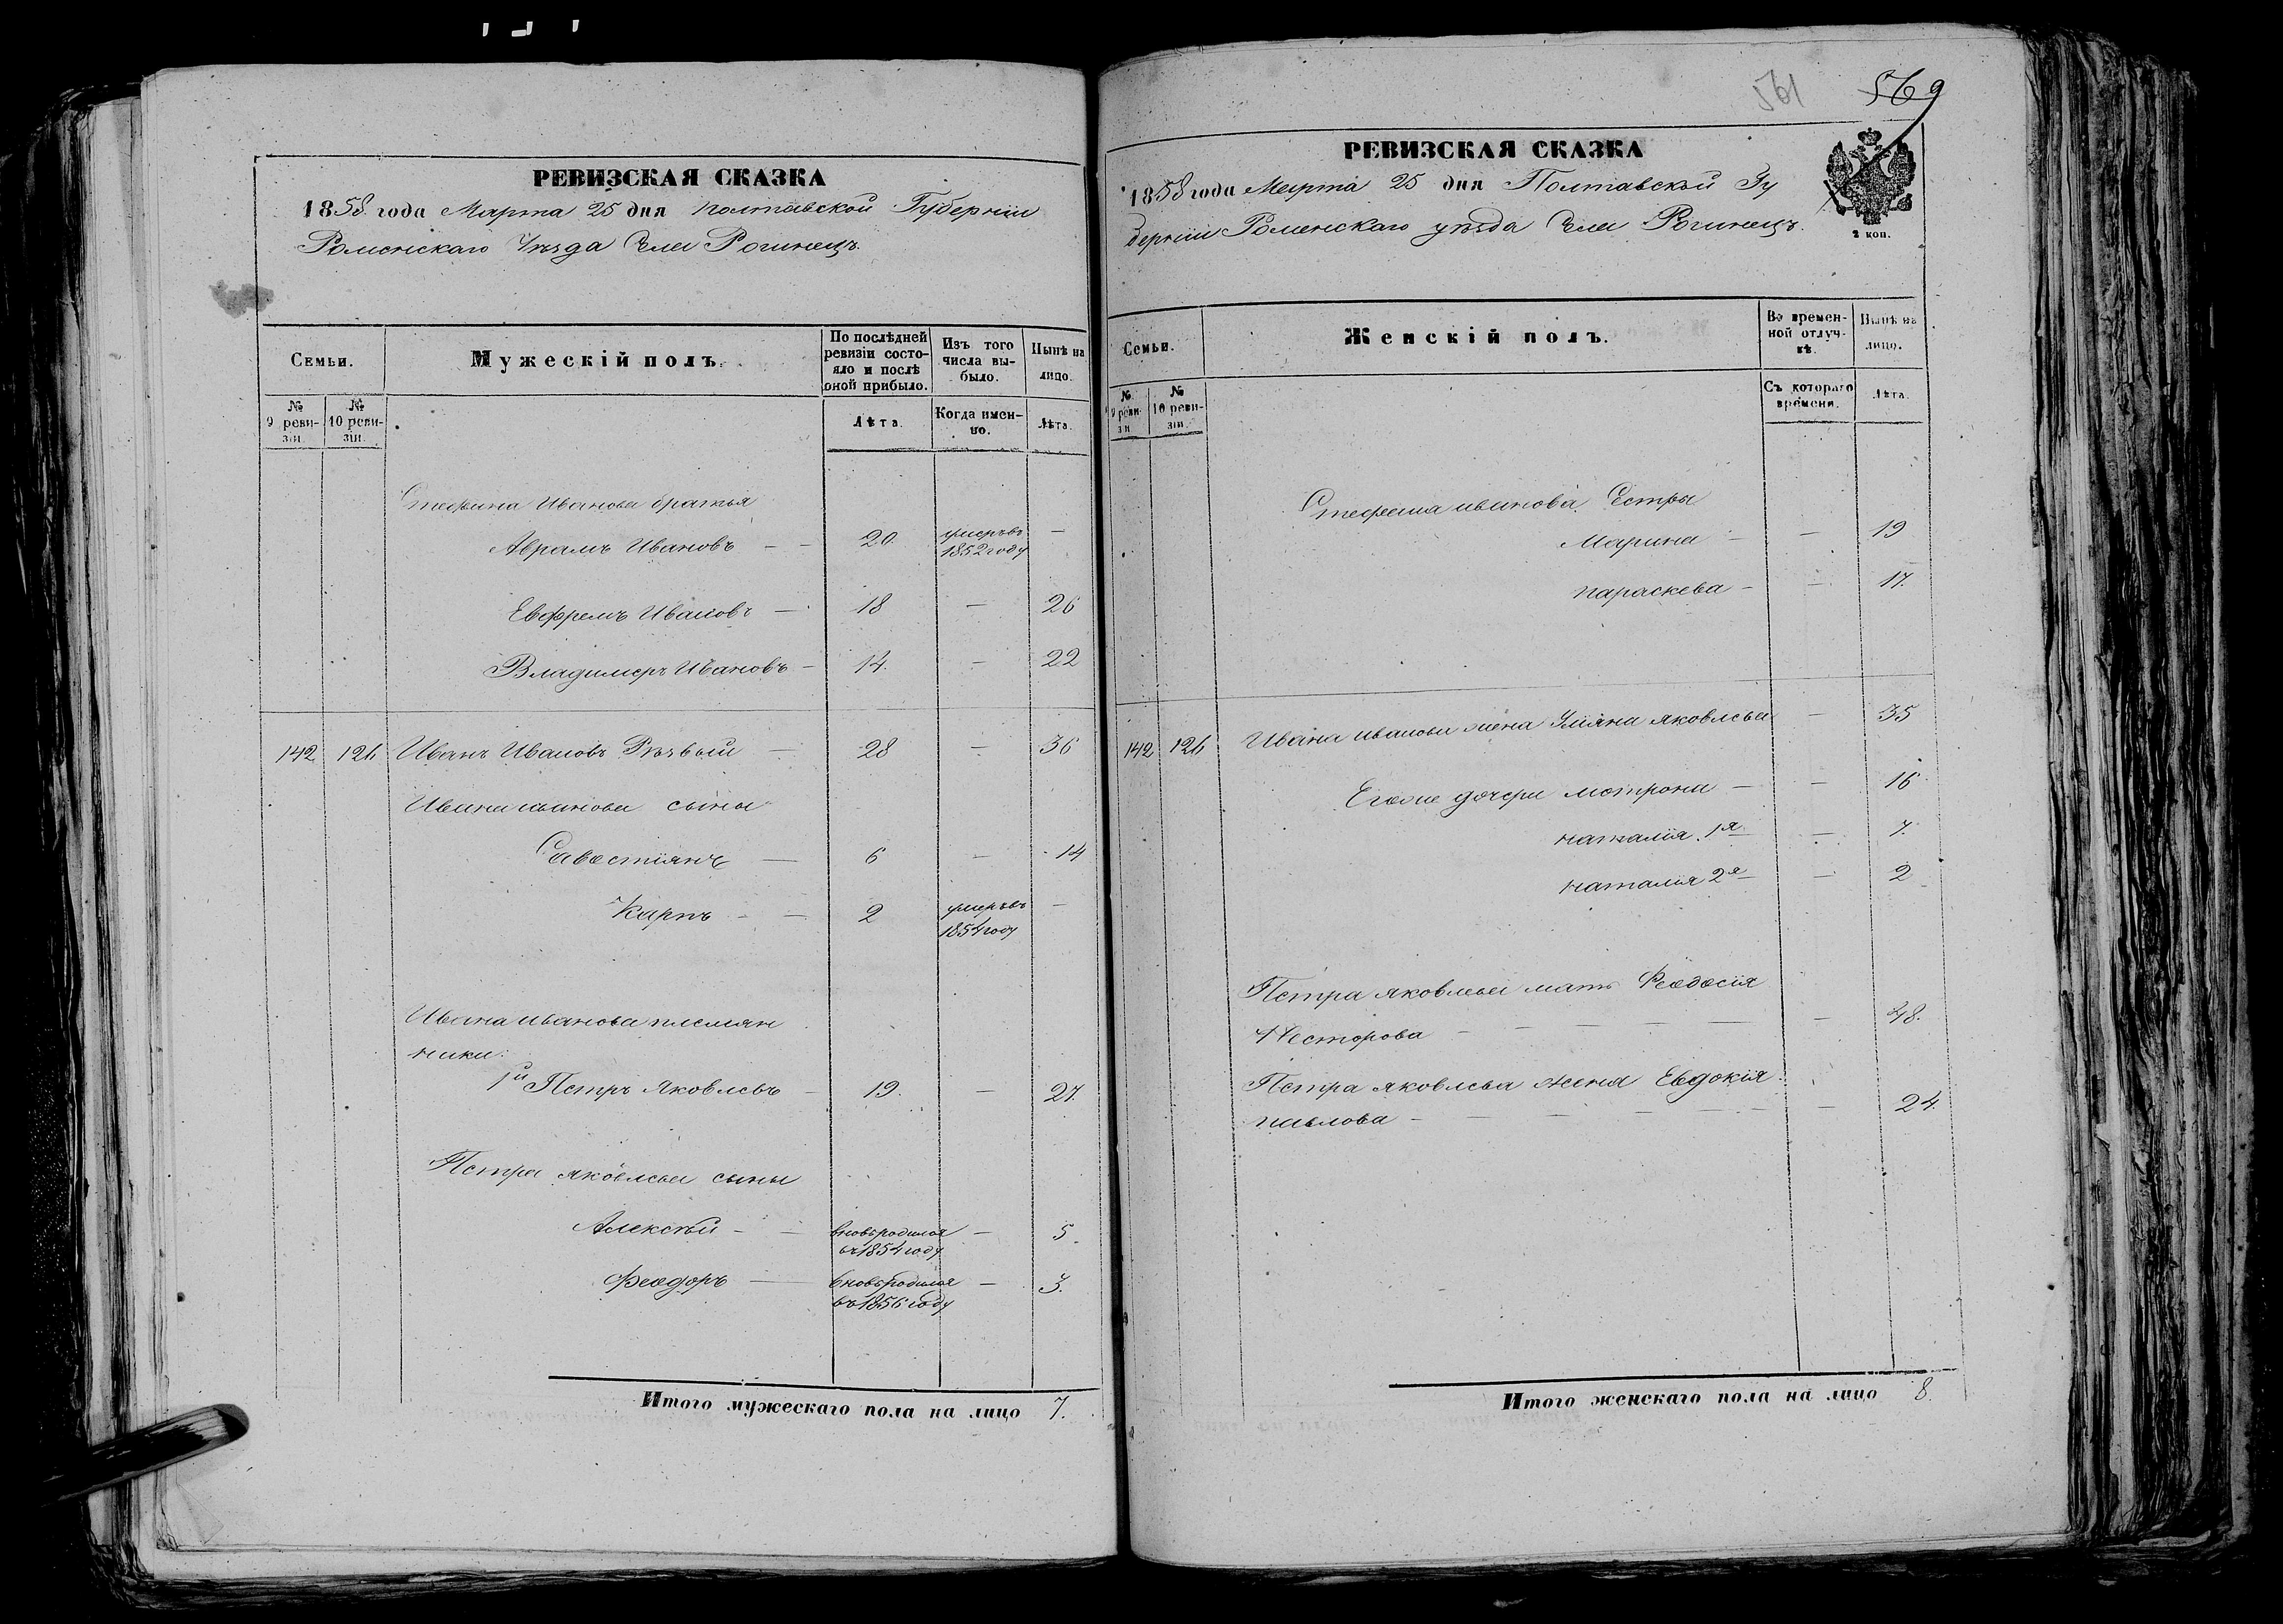 РЕВИЗСКАЯ СКАЗКА
1858 года Марта 25 дня Полтавской Губерніи
Роменскаго Уезда Села Рогинецъ
Семьи.
Мужескій полъ.
По послѣдней ревизіи состояло и послѣ оной прибыло.
Изъ того числа выбыло.
Нынѣ на лицо.
№ 9 ревизіи.
№ 10 ревизіи.
Лѣта.
Когда именно.
Лѣта.
Стефана Иванова братья
Аврамъ Ивановъ — — 20. умеръ въ 1852 году —
Евфремъ Ивановъ — 18 — 26
Владимеръ Ивановъ — 14. — 22
142 126 Иванъ Ивановъ — 28 — 36
Ивана иванова сыны
Савостіянъ — 6 — 14
Карпъ — — 2 умеръ въ 1854 году —
Ивана иванова племян
ники:
1й Петръ Яковлевъ — 19. — 27.
Петра яковлева сыны
Алексѣй — — вновьродился въ 1854 году — 5.
Феодоръ — вновьродился въ 1856 году — 3.
Итого мужескаго пола на лицо 7.
561 569
РЕВИЗСКАЯ СКАЗКА
1858 года Марта 25 дня Полтавской Гу
берніи Роменскаго уезда Села Рогинецъ.
2 коп.
Семьи.
Женскій полъ.
Во временной отлучкѣ.
Нынѣ на лицо.
№ 9 ревизіи
№ 10 ревизіи.
Съ котораго времени.
Лѣта.
Стефана иванова Сестры
Марина — — 19
параскева — — 17.
142 126 Ивана иванова жена Уліяна яковлева — 35
Егоже дочери мотрона — — 16
наталія 1я — 7.
наталія 2я — 2
Петра яковлева мать Феодосія
Несторова — — — — — — 48.
Петра яковлева жена Евдокія
павлова — — — — — — 24.
Итого женскаго пола на лицо 8.